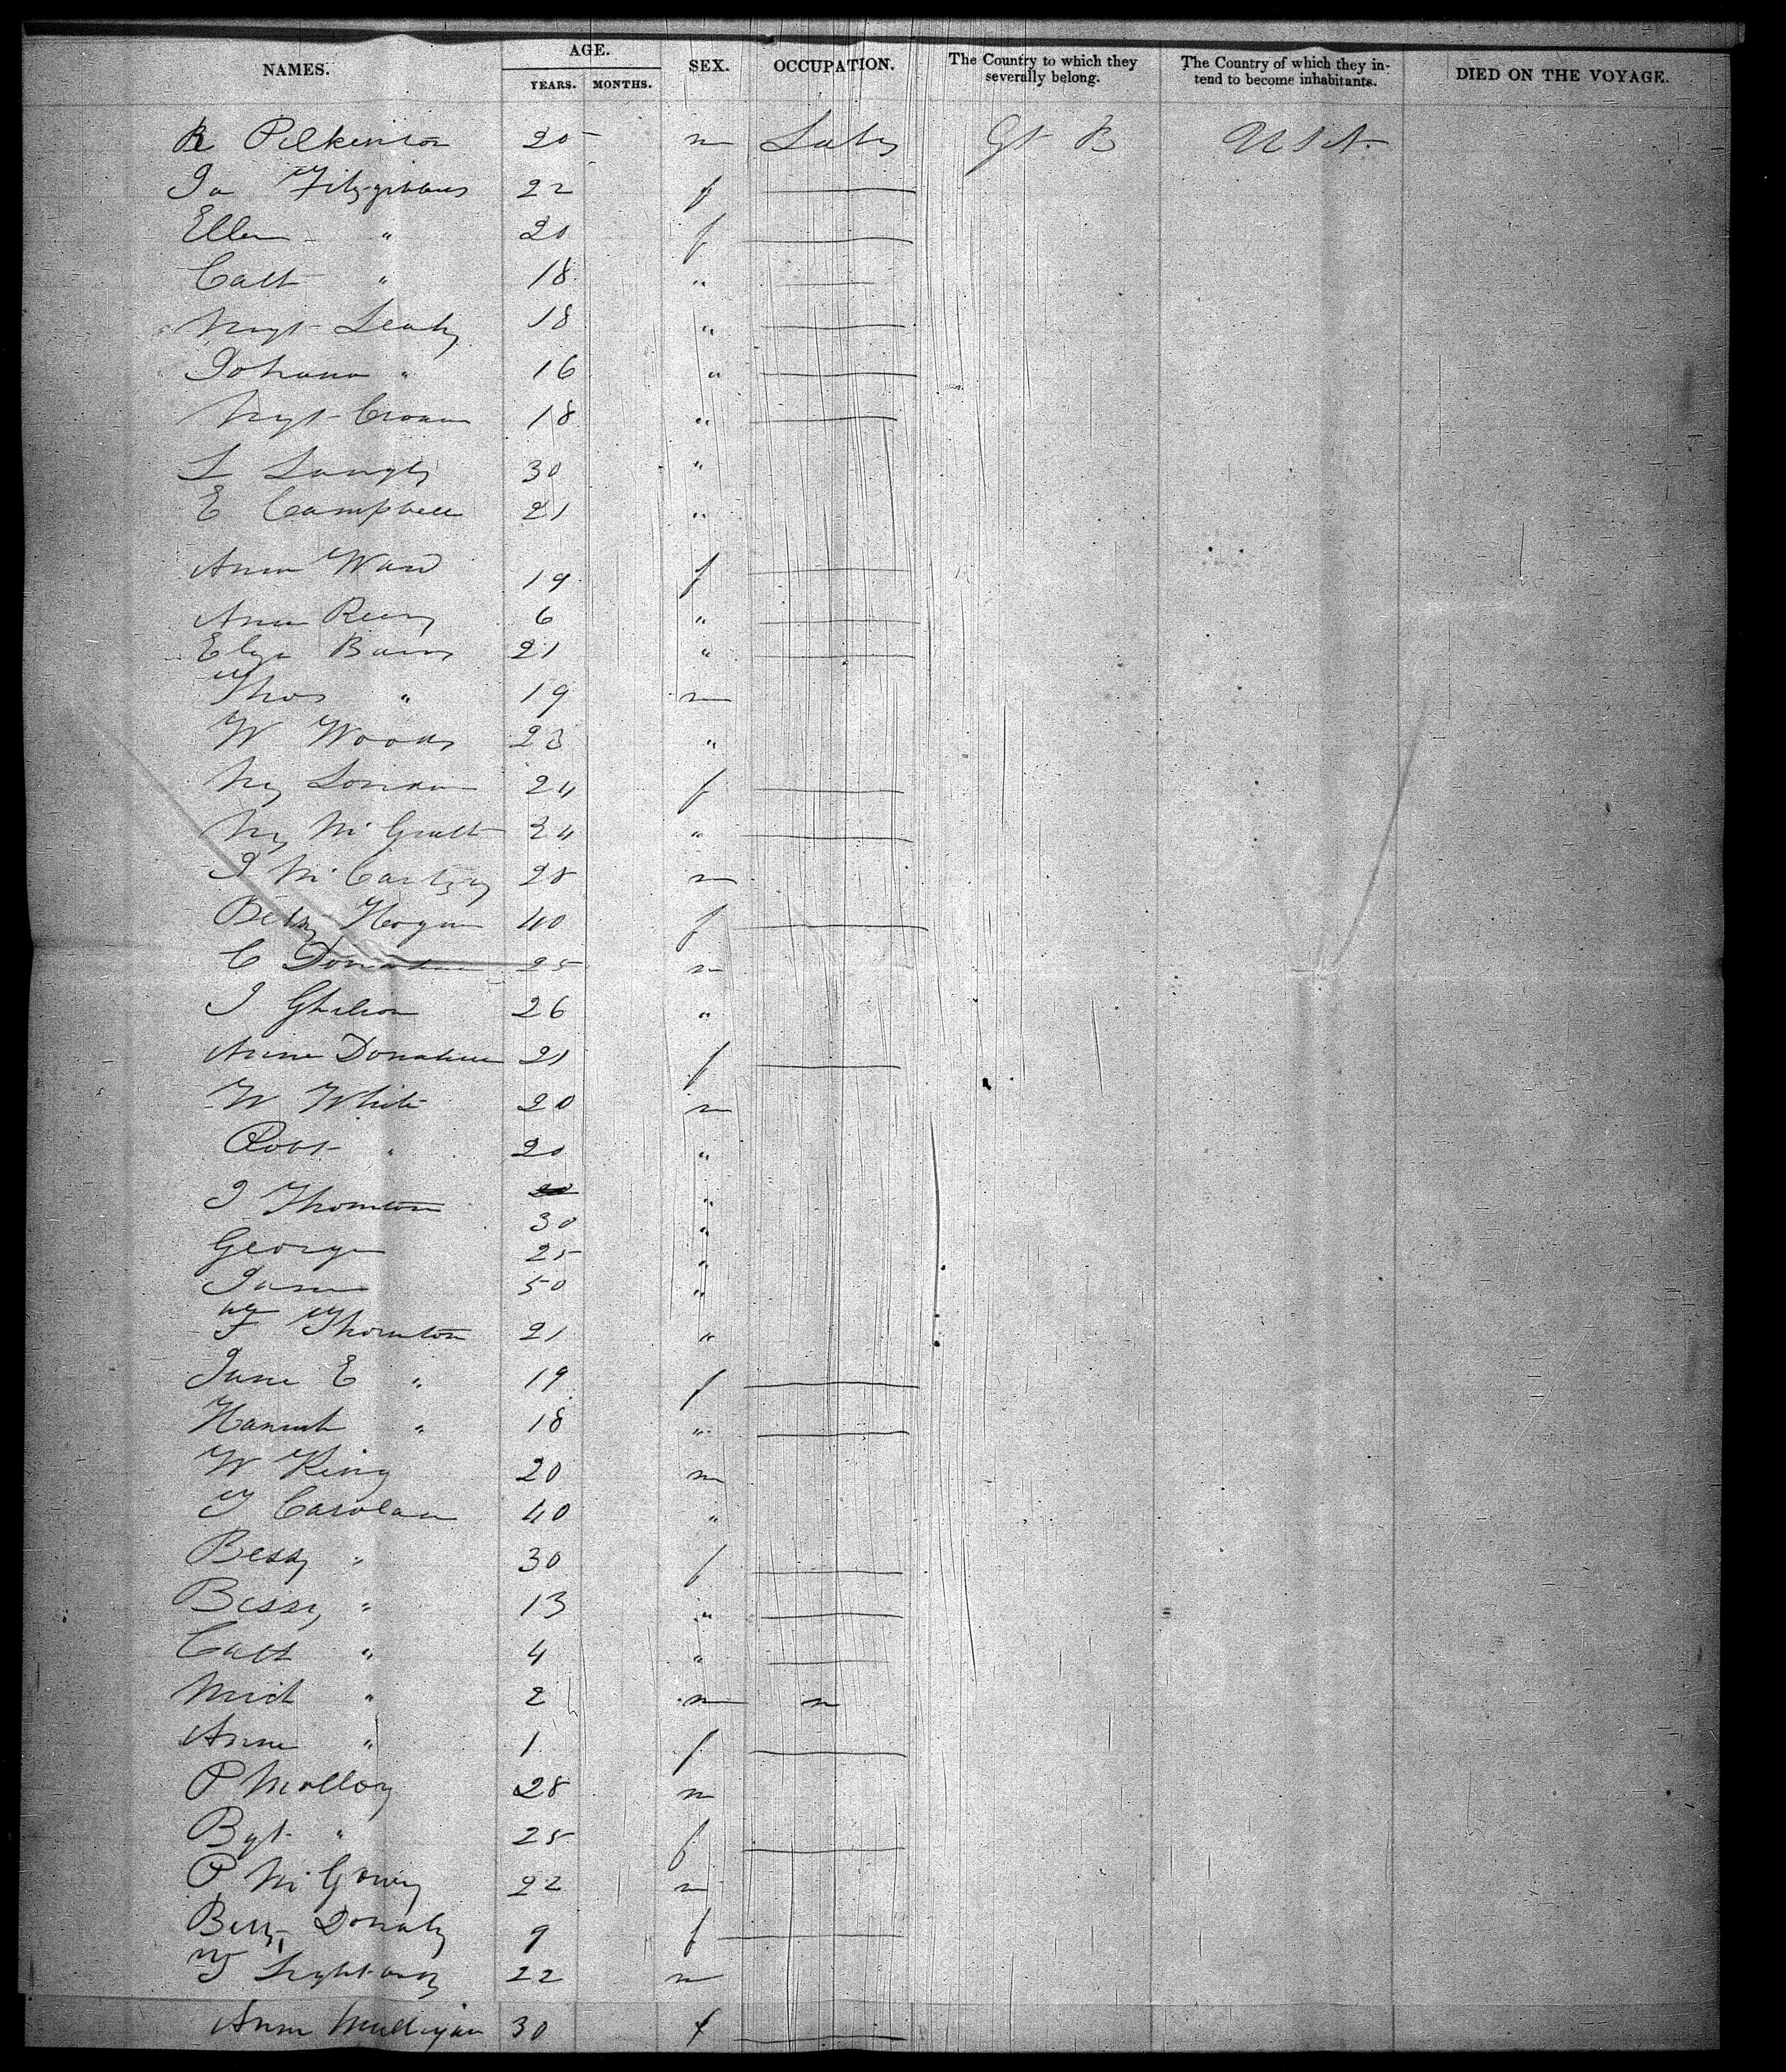 NAMES. AGE. SEX. OCCUPATION. The Country to which they severally belong. The Country of which they intend to become inhabitants. DIED ON THE VOYAGE.
YEARS. MONTHS.
R Pilkinton 25 m Labr Gt B U S A
Jo Fitzgibbons 22 f
Ellen " 20 f
Cath " 18 "
Mgt Leahy 18 "
Johana " 16 "
Mgt Cronan 18 "
L Langly 30 "
E Campbell 21 "
Ann Ward 19 f
Ann 6 "
Eliza 21 "
Thos " 19 m
W Woods 23 "
My 24 f
My McGrath 24 "
J McCarthy 28 m
Betsy Hogan 40 f
C Donahue 25 m
J 26 "
Anne Donahue 21 f
W White 20 m
Robt " 20 "
J Thornton 20 "
30 "
George 25 "
50 "
Thornton 21 "
Jane E " 19 f
Hannah " 18 "
W King 20 m
T Carolan 40 "
Bessy " 30 f
Bessy " 13 "
Cath " 4 "
Mich " 2 m m
Anne " 1 f
P Molloy 28 m
Bgt " 25 f
P McGowing 22 m
Betsy Donahy 9 f
22 m
Ann Mulligan 30 f